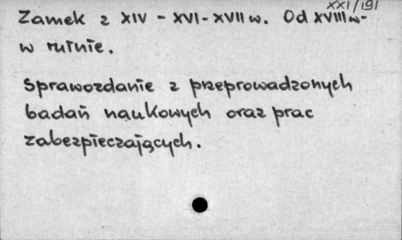 XXI/191
Zamek z XIV - XVI-XVII w. Od XVIII w-
w ruinie.
Sprawozdanie z przeprowadzonych
badań naukowych oraz prac
zabezpieczających.